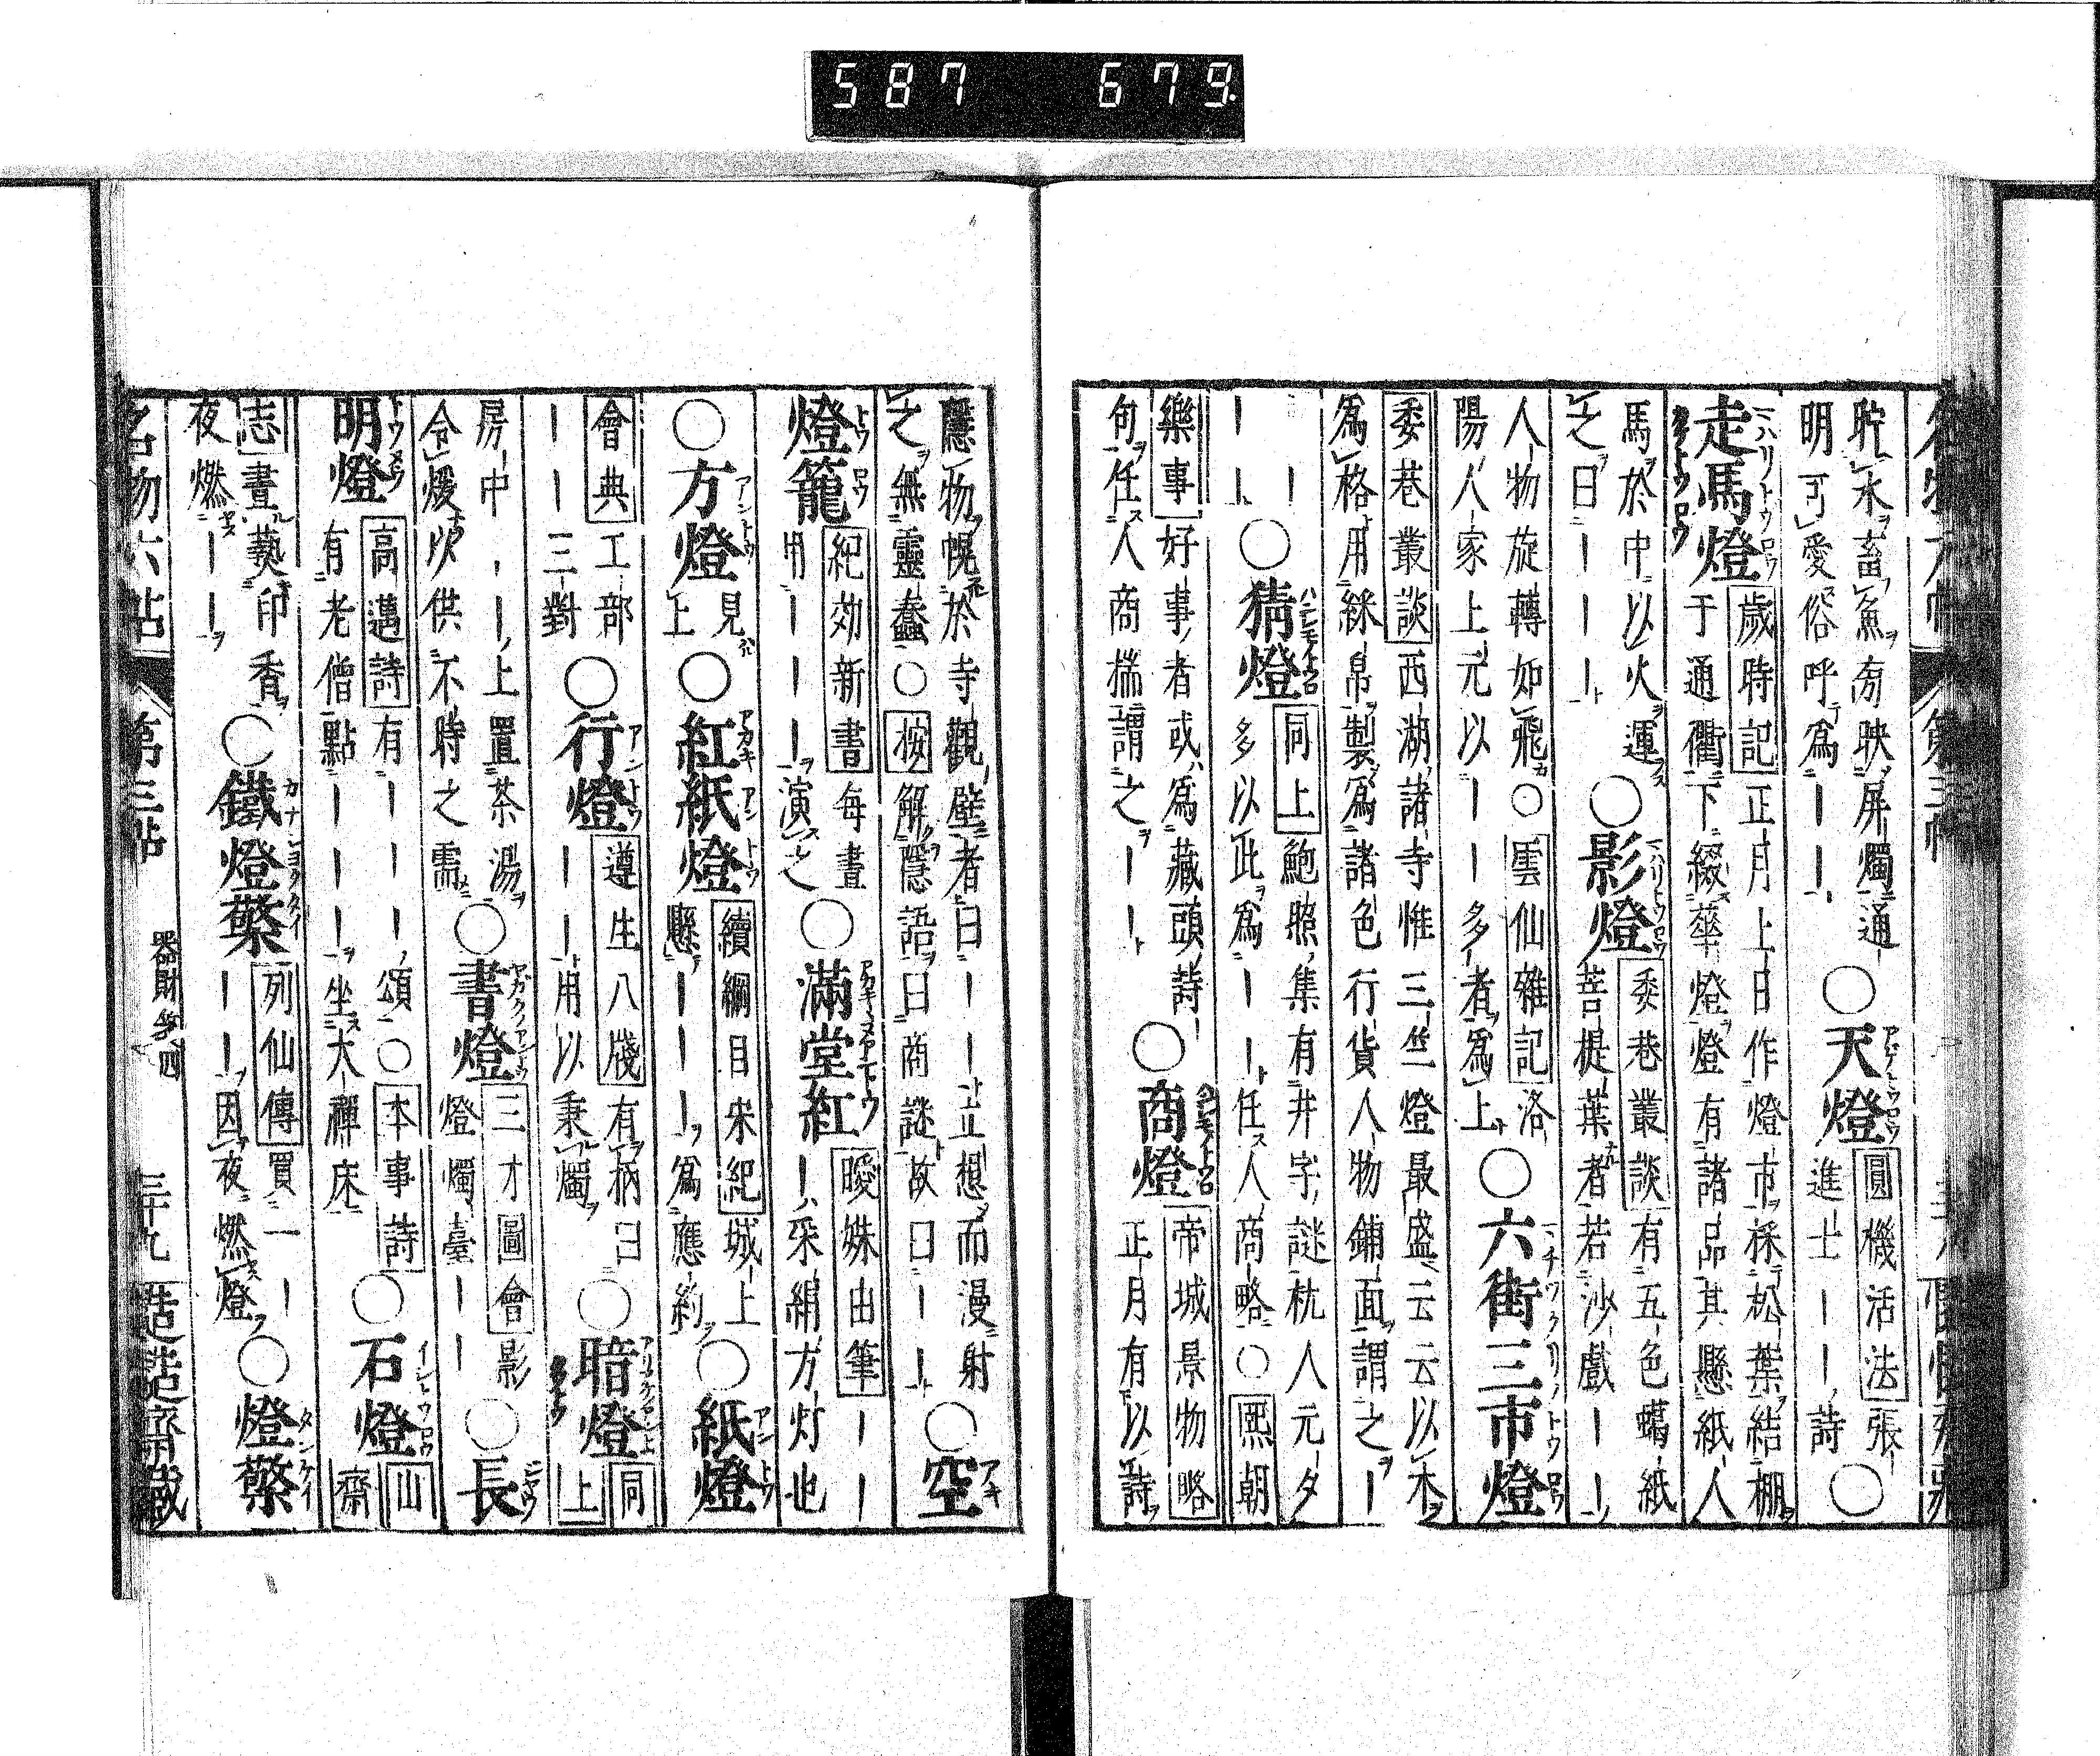 587 679
貯水畜魚旁映屏燭通
明可愛俗呼為｜｜
○天燈
圓機活法張
進士｜｜詩
○
走馬燈
歲時記正月上日作燈市採松葉結棚
于通衢下綴華燈燈有諸品其懸紙人
馬於中以火運
之曰｜｜｜
○影燈
委巷叢談有五色蠟紙
菩提葉者若沙戲｜｜
人物旋轉如飛○雲仙雜記洛
陽人家上元以｜｜多者為上
○六街三市燈
委巷叢談西湖諸寺惟三竺燈最盛云云以木
為格用綵帛製為諸色行貨人物鋪面謂之｜
｜｜｜
○猜燈
同上鮑照集有井字謎杭人元夕
多以此為｜｜任人商略○熙朝
樂事好事者或為藏頭詩
句任人商揣謂之｜｜
○商燈
帝城景物略
正月有以詩
隱物幌於寺觀壁者曰｜｜立想而漫射
之無靈蠢○按解隱語曰商謎故曰｜｜
○空
燈籠
紀効新書每晝
用｜｜｜演之
○滿堂紅
曖姝由筆｜｜
｜采絹方灯也
○方燈
見
上
○紅紙燈
續綱目宋紀城上
懸｜｜｜為應約
○紙燈
會典工部
｜｜三對
○行燈
遵生八牋有柄曰
｜｜用以秉燭
○暗燈
同
上
房中｜｜上置茶湯
令煖以供不時之需
○書燈
三才圖會影
燈燭臺｜｜
○長
明燈
高邁詩有｜｜｜頌○本事詩
有老僧點｜｜｜坐大禪床
○石燈
山
齋
志晝爇印香
夜燃｜｜
○鐵燈檠
列仙傳買一｜
｜｜因夜燃燈
○燈檠
名物六帖 第三帖 器財箋四 三十九